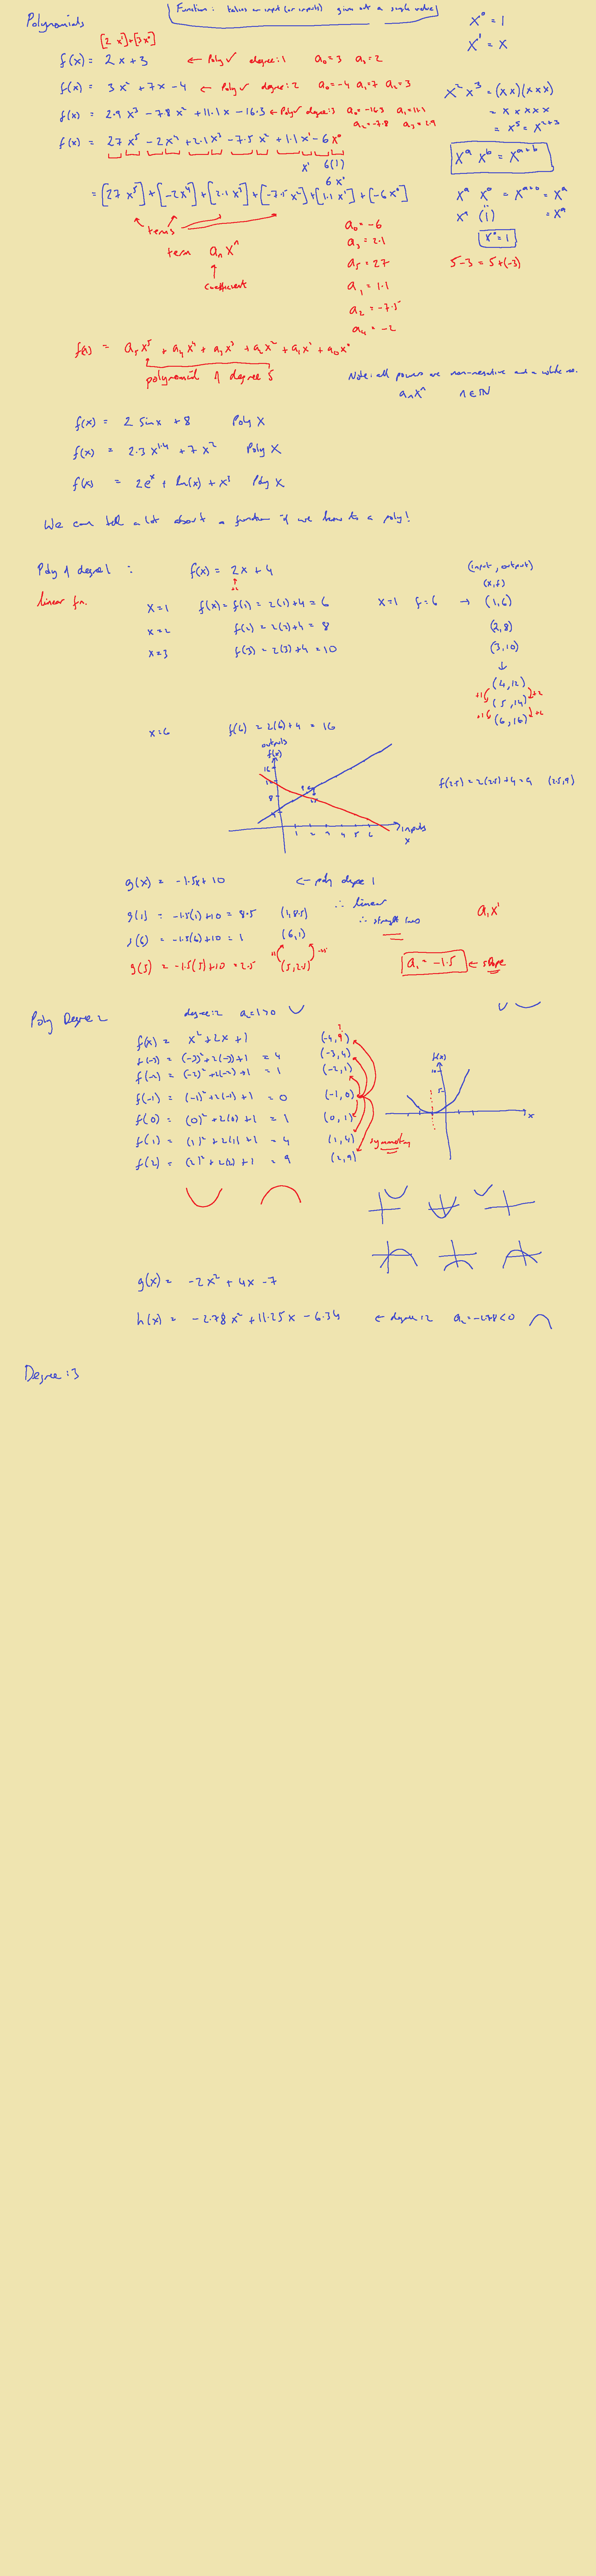 Polynomials
Function: takes an input (or inputs) gives out a single value
x⁰ = 1
x¹ = x
[2 x¹]+[3x⁰]
f(x) = 2x+3 ← Poly ✓ degree: 1 a₀=3 a₁=2
f(x) = 3x² +7x -4 ← Poly ✓ degree: 2 a₀=-4 a₁=7 a₂=3
f(x) = 2.9 x³ -7.8 x² +11.1x -16.3 ← Poly ✓ degree: 3 a₀=-16.3 a₁=11.1
a₂=-7.8 a₃=2.9
f(x) = 27 x⁵ -2x⁴ +2.1x³ -7.5 x² +1.1 x¹ -6x⁰
x¹ 6(1)
6 x⁰
= [27 x⁵]+[-2x⁴]+[2.1 x³]+[-7.5 x²]+[1.1 x¹]+[-6x⁰]
terms
term aₙ xⁿ
coefficient
x² x³ = (xx)(xxx)
= x x x x x
= x⁵ = x²⁺³
xᵃ xᵇ = xᵃ⁺ᵇ
xᵃ x⁰ = xᵃ⁺⁰ = xᵃ
xᵃ (1) = xᵃ
x⁰ = 1
5-3 = 5+(-3)
a₀ = -6
a₃ = 2.1
a₅ = 27
a₁ = 1.1
a₂ = -7.5
a₄ = -2
f(x) = a₅x⁵ + a₄x⁴ + a₃x³ + a₂x² + a₁x¹ + a₀x⁰
polynomial of degree 5
Note: all powers are non-negative and a whole no.
aₙxⁿ n∈ℕ
f(x) = 2 sin x + 8 Poly X
f(x) = 2.3 x¹·⁴ + 7x² Poly X
f(x) = 2eˣ + ln(x) + x³ Poly X
We can tell a lot about a function if we know its a poly!
Poly of degree 1 : f(x) = 2x + 4
linear fn.
(input, output)
(x, f)
x=1 f(x) = f(1) = 2(1)+4 = 6 x=1 f=6 → (1,6)
x=2 f(2) = 2(2)+4 = 8 (2,8)
x=3 f(3) = 2(3)+4 = 10 (3,10)
↓
(4,12)
+1 (5,14) +2
+1 (6,16) +2
x=6 f(6) = 2(6)+4 = 16
outputs
f(x)
16
8
4
1 2 3 4 5 6
inputs
x
f(2.5) = 2(2.5)+4 = 9 (2.5,9)
g(x) = -1.5x+10 ← poly degree 1
∴ linear
g(1) = -1.5(1)+10 = 8.5 (1,8.5) ∴ straight lines
g(6) = -1.5(6)+10 = 1 (6,1)
g(5) = -1.5(5)+10 = 2.5 (5,2.5)
a₁x¹
a₁ = -1.5 ← slope
Poly Degree 2 degree: 2 a₂=1>0
f(x) = x² +2x +1 (-4,9)
f(-3) = (-3)²+2(-3)+1 = 4 (-3,4)
f(-2) = (-2)² +2(-2)+1 = 1 (-2,1)
f(-1) = (-1)² +2(-1)+1 = 0 (-1,0)
f(0) = (0)² +2(0)+1 = 1 (0,1)
f(1) = (1)² +2(1)+1 = 4 (1,4)
f(2) = (2)² +2(2)+1 = 9 (2,9)
symmetry
f(x)
10
5
x
g(x) = -2x² + 4x -7
h(x) = -2.78 x² +11.25x -6.34 ← degree: 2 a₂=-2.78<0
Degree: 3